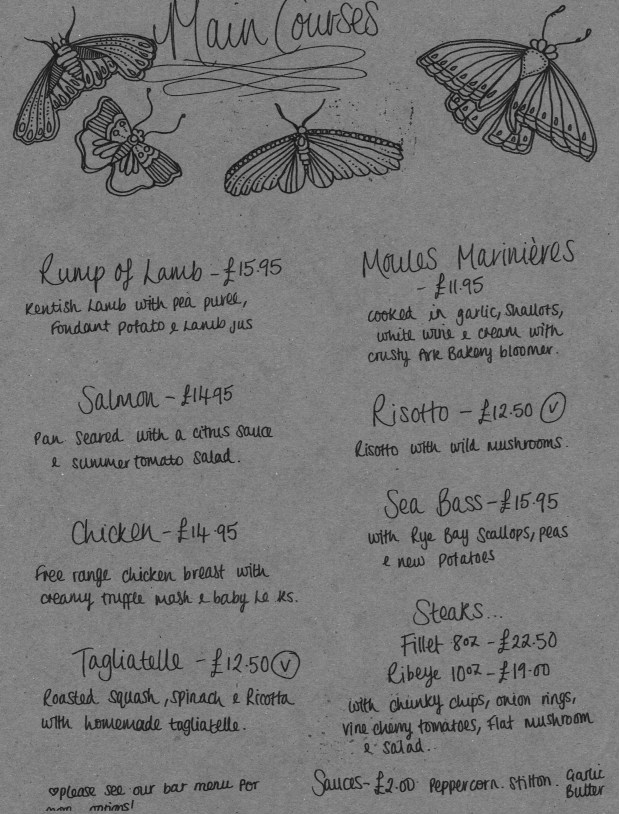 Main Courses
Rump of Lamb - £15.95
Kentish Lamb with pea puree,
Fondant Potato & Lamb jus
Salmon - £14.95
Pan Seared with a citrus sauce
& summer tomato salad.
Chicken - £14.95
Free range chicken breast with
creamy truffle mash & baby
Tagliatelle - £12.50 (V)
Roasted Squash, spinach & Ricotta
with homemade tagliatelle.
♡please see our bar menu for
options!
Moules Marinières
- £11.95
cooked in garlic, shallots,
white wine & cream with
crusty Ark Bakery bloomer.
Risotto - £12.50 (V)
Risotto with wild mushrooms.
Sea Bass - £15.95
with Rye Bay Scallops, peas
& new potatoes
Steaks...
Fillet 8oz - £22.50
Ribeye 10oz - £19.00
with chunky chips, onion rings,
vine cherry tomatoes, Flat mushroom
& salad.
Sauces - £2.00 Peppercorn. Stilton. Garlic
Butter